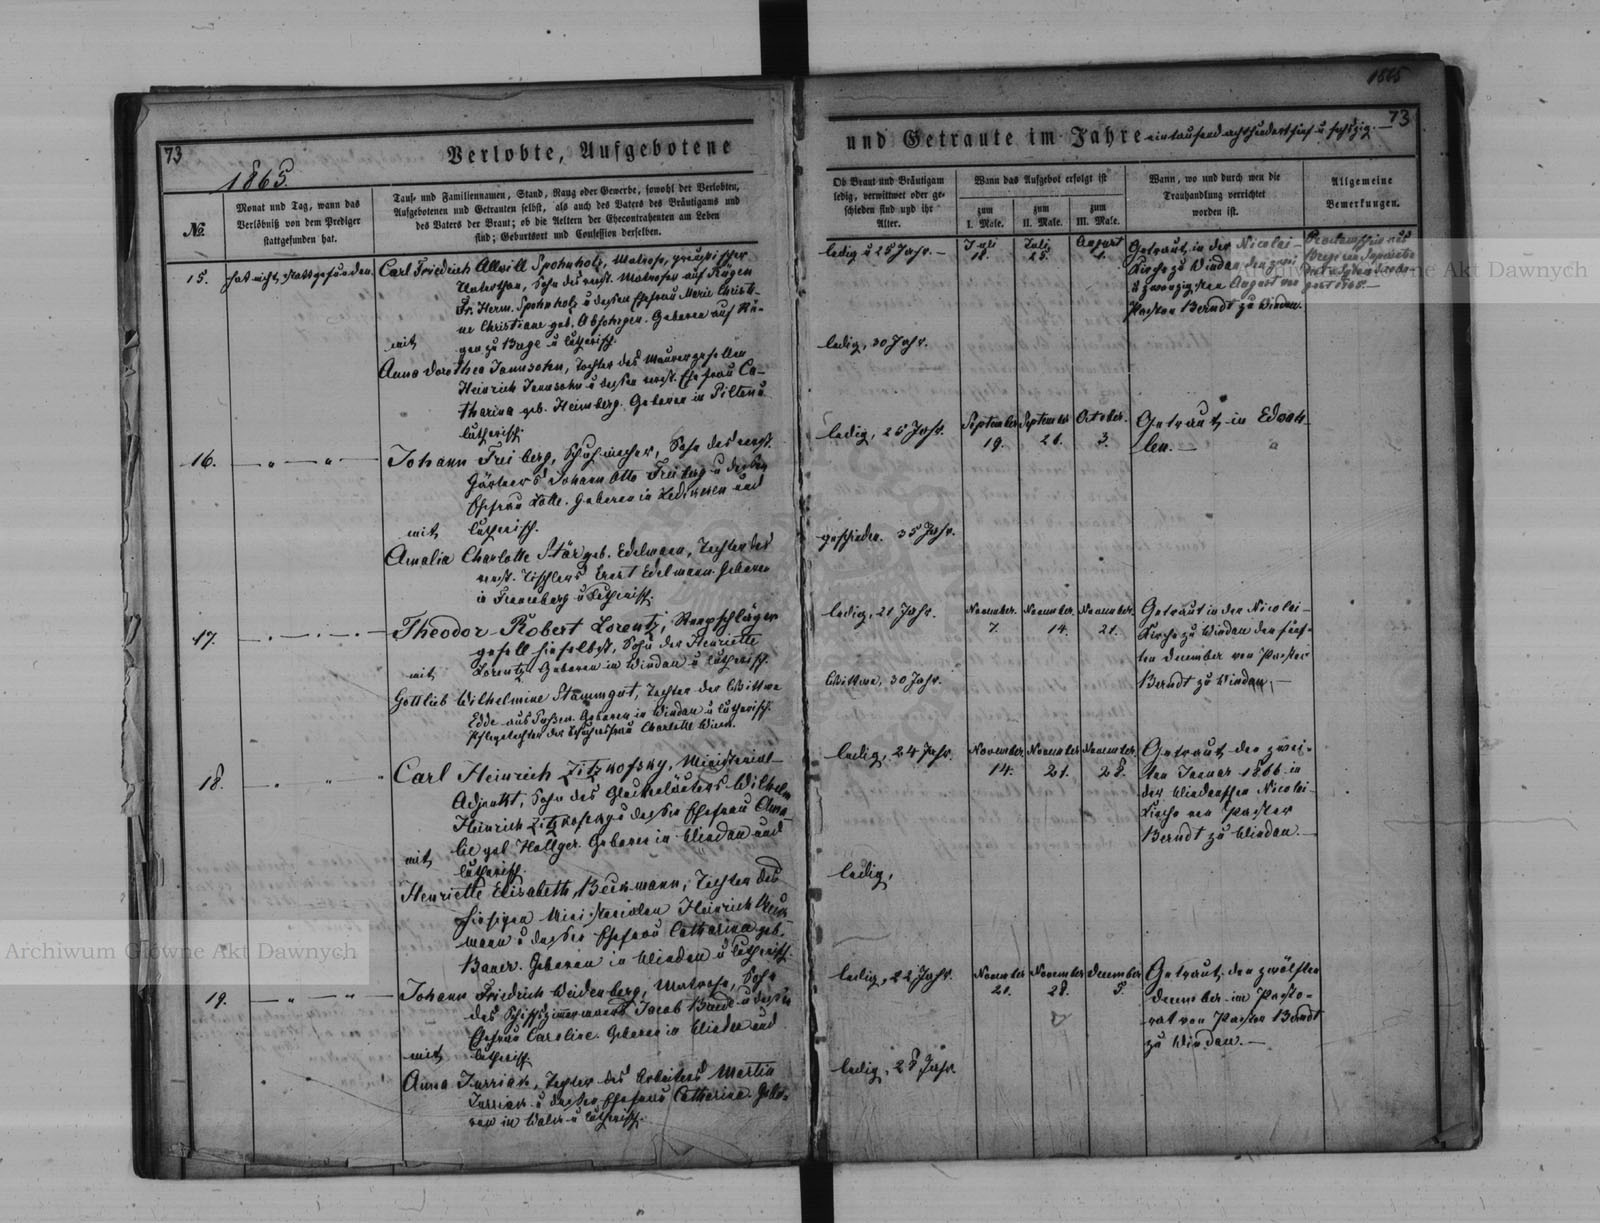 1865
73
73
Verlobte, Aufgebotene
und Getraute im Jahre eintausend achthundert fünf u. sechszig.
1865.
No.
Monat und Tag, wann das
Verlöbniß von dem Prediger
stattgefunden hat.
Tauf- und Familiennamen, Stand, Rang oder Gewerbe, sowohl der Verlobten,
Aufgebotenen und Getrauten selbst, als auch des Vaters des Bräutigams und
des Vaters der Braut; ob die Aeltern der Ehecontrahenten am Leben
sind; Geburtsort und Confession derselben.
Ob Braut und Bräutigam
ledig, verwittwet oder ge-
schieden sind und ihr
Alter.
Wann das Aufgebot erfolgt ist
zum
I. Male.
zum
II. Male.
zum
III. Male.
Wann, wo und durch wen die
Trauhandlung verrichtet
worden ist.
Allgemeine
Bemerkungen.
15.
hat nicht stattgefunden.
Carl Friedrich Allwill Spohnholz, Matrose, preussischer
Unterthan, Sohn des verst. Matrosen auf Rügen
Fr. Herm. Spohnholz u dessen Ehefrau Marie Christi-
ne Christiane geb. Geboren auf Rü-
gen zu u lutherisch.
mit
Anna Dorothea Jannsohn, Tochter des Maurergesellen
Heinrich Jannsohn u dessen verst. Ehefrau Ca-
tharina geb. Heimberg. Geboren in Pilten u
lutherisch.
ledig u 25 Jahr. –
Juli
18.
Juli
25.
August
1.
Getraut in der Nicolei-
Kirche zu Windau den zwei
u zwanzigsten August von
Pastor Berndt zu Windau.
ledig, 30 Jahr.
16.
Johann Freiberg, Schuhmacher, Sohn des verst.
Gärtners Johann Otto Freiberg u dessen
Ehefrau Lotte. Geboren in und
lutherisch.
mit
Amalia Charlotte Stär geb. Edelmann, Tochter des
verst. Tischlers Edelmann. Geboren
in Frauenburg u lutherisch.
ledig, 25 Jahr.
September
19.
September
26.
October.
3.
Getraut in Edwah-
len. –
geschieden. 35 Jahr.
17.
Theodor Robert Lorentz, Reepschläger
gesell hieselbst, Sohn der Henriette
Lorentz. Geboren in Windau u lutherisch.
mit
Gottlieb Wilhelmine Stammgut, Tochter der Wittwe
Edde aus Geboren in Windau u lutherisch.
Pflegetochter der Charlotte
ledig, 21 Jahr.
November.
7.
November.
14.
November.
21.
Getraut in der Nicolei-
Kirche zu Windau den fünf-
ten December von Pastor
Berndt zu Windau. –
Wittwe, 30 Jahr.
18.
Carl Heinrich Zitzkofsky, Ministerial-
Adjunkt, Sohn des Glockenläuters Wilhelm
Heinrich Zitzkofsky u dessen Ehefrau Ama-
lie geb. Hollger. Geboren in Windau und
lutherisch.
mit
Henriette Elisabeth Beckmann, Tochter des
hiesigen Ministerialen Heinrich Beck-
mann u dessen Ehefrau Catharina geb.
Bauer. Geboren in Windau u lutherisch.
ledig, 24 Jahr.
November.
14.
November.
21.
November.
28.
Getraut den zwei-
ten Januar 1866 in
der Windauschen Nicolei-
Kirche von Pastor
Berndt zu Windau. –
ledig,
19.
Johann Friedrich Weidenberg, Matrose, Sohn
des Schiffszimmermanns Jacob u dessen
Ehefrau Caroline. Geboren in Windau und
lutherisch.
mit
Anna Jurriak, Tochter des Arbeiters Martin
Jurriak u dessen Ehefrau Catharina. Gebo-
ren in u lutherisch.
ledig, 22 Jahr.
November
21.
November
28.
December
5.
Getraut den zwölften
December im Pasto-
rat von Pastor Berndt
zu Windau. –
ledig, 28 Jahr.
Archiwum Główne Akt Dawnych
Archiwum Główne Akt Dawnych